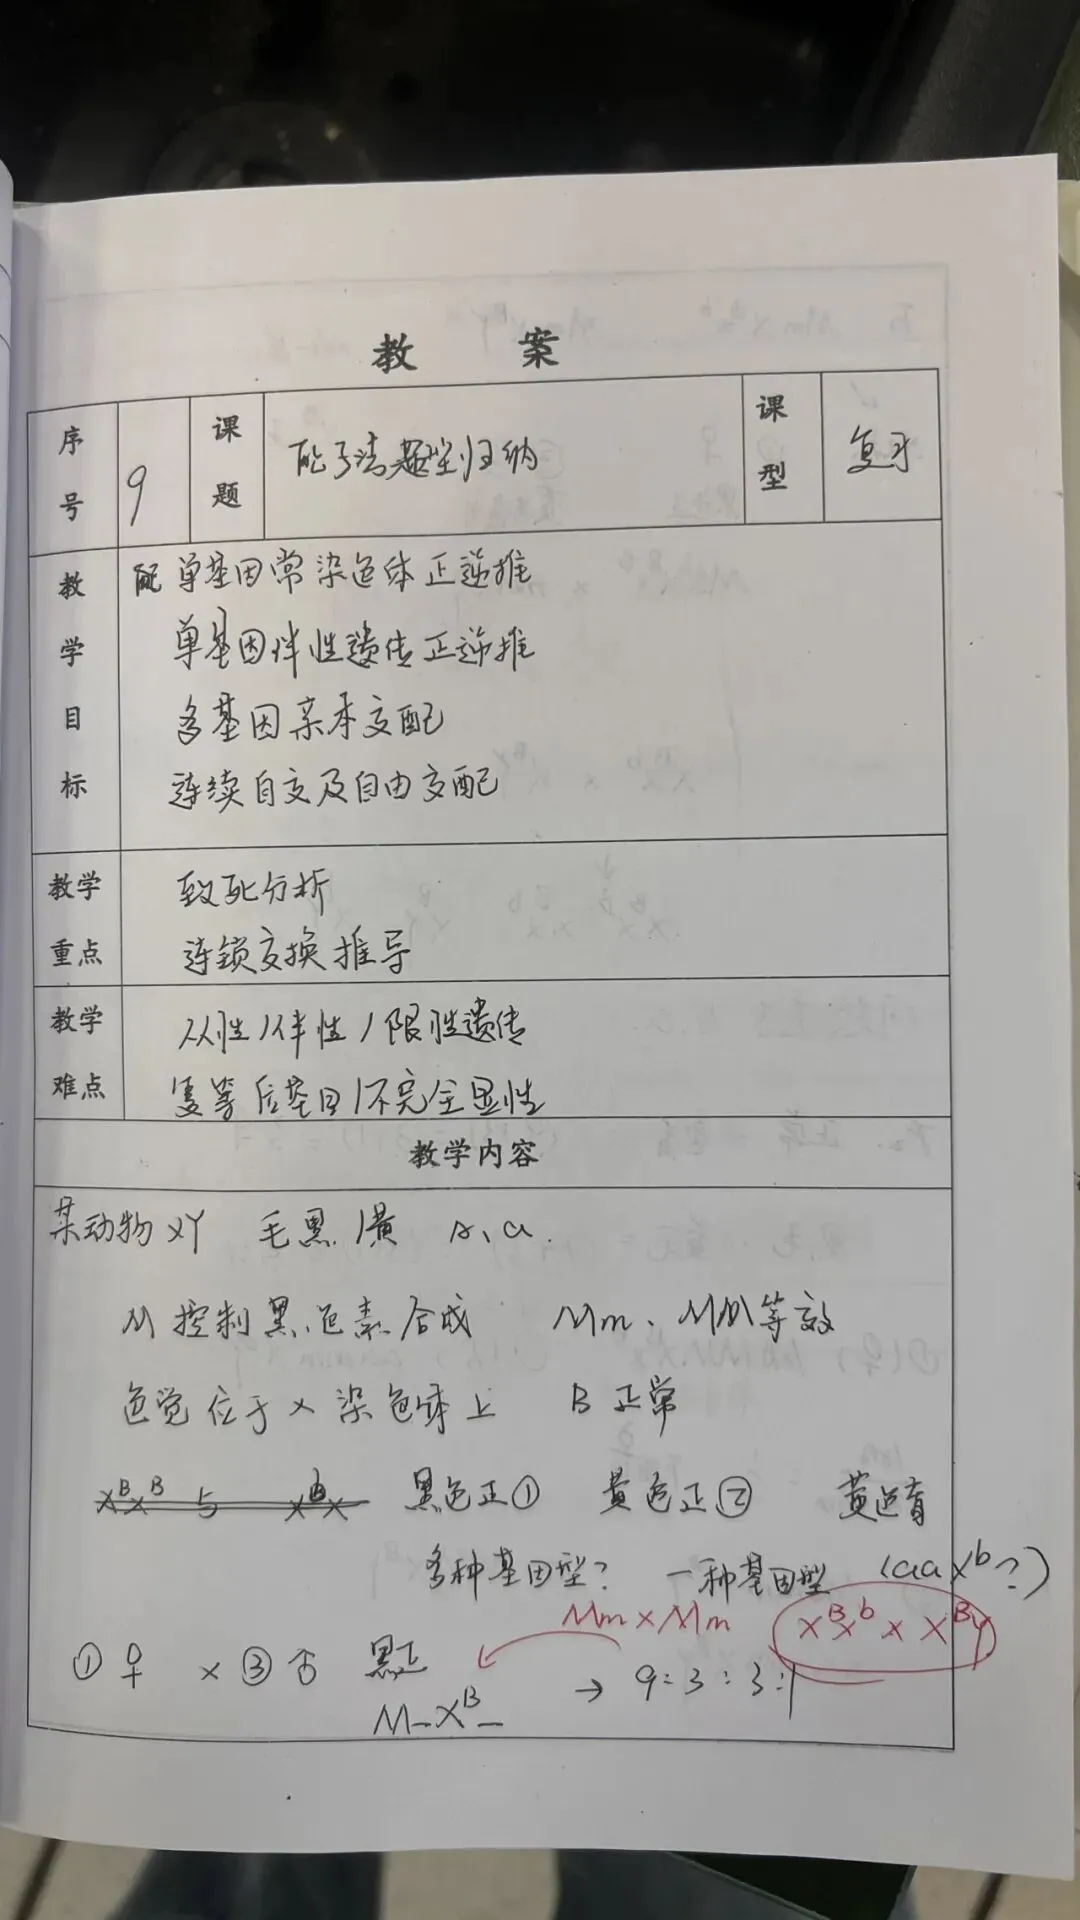 教 案
序号 9 课题 配子法题型归纳 课型 复习
教学目标
配 单基因常染色体正逆推
单基因伴性遗传正逆推
多基因亲本交配
连续自交及自由交配
教学重点
致死分析
连锁交换推导
教学难点
从性/伴性/限性遗传
复等后基因/不完全显性
教学内容
某动物XY 毛黑/黄 A、a.
M控制黑色素合成 Mm、MM等效
色觉位于X染色体上 B正常
黑色正① 黄色正② 黄色盲
多种基因型? 一种基因型 (aaXᵇ?)
Mm×Mm XᴮXᵇ × XᴮY
①♀ ×③♂ 黑正 → 9:3:3:1
M_Xᴮ_